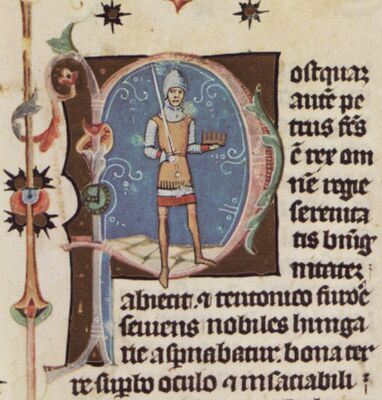 Postquaz
autē pe
trus fc̄s
ē rex om
nē regie
serenita
tis bnīg
nitatez
abiecit. ⁊ teutonico furoē
seuiens nobiles hunga
rie aspnabatur. bona ter
re supbo oculo ⁊ insaciabili